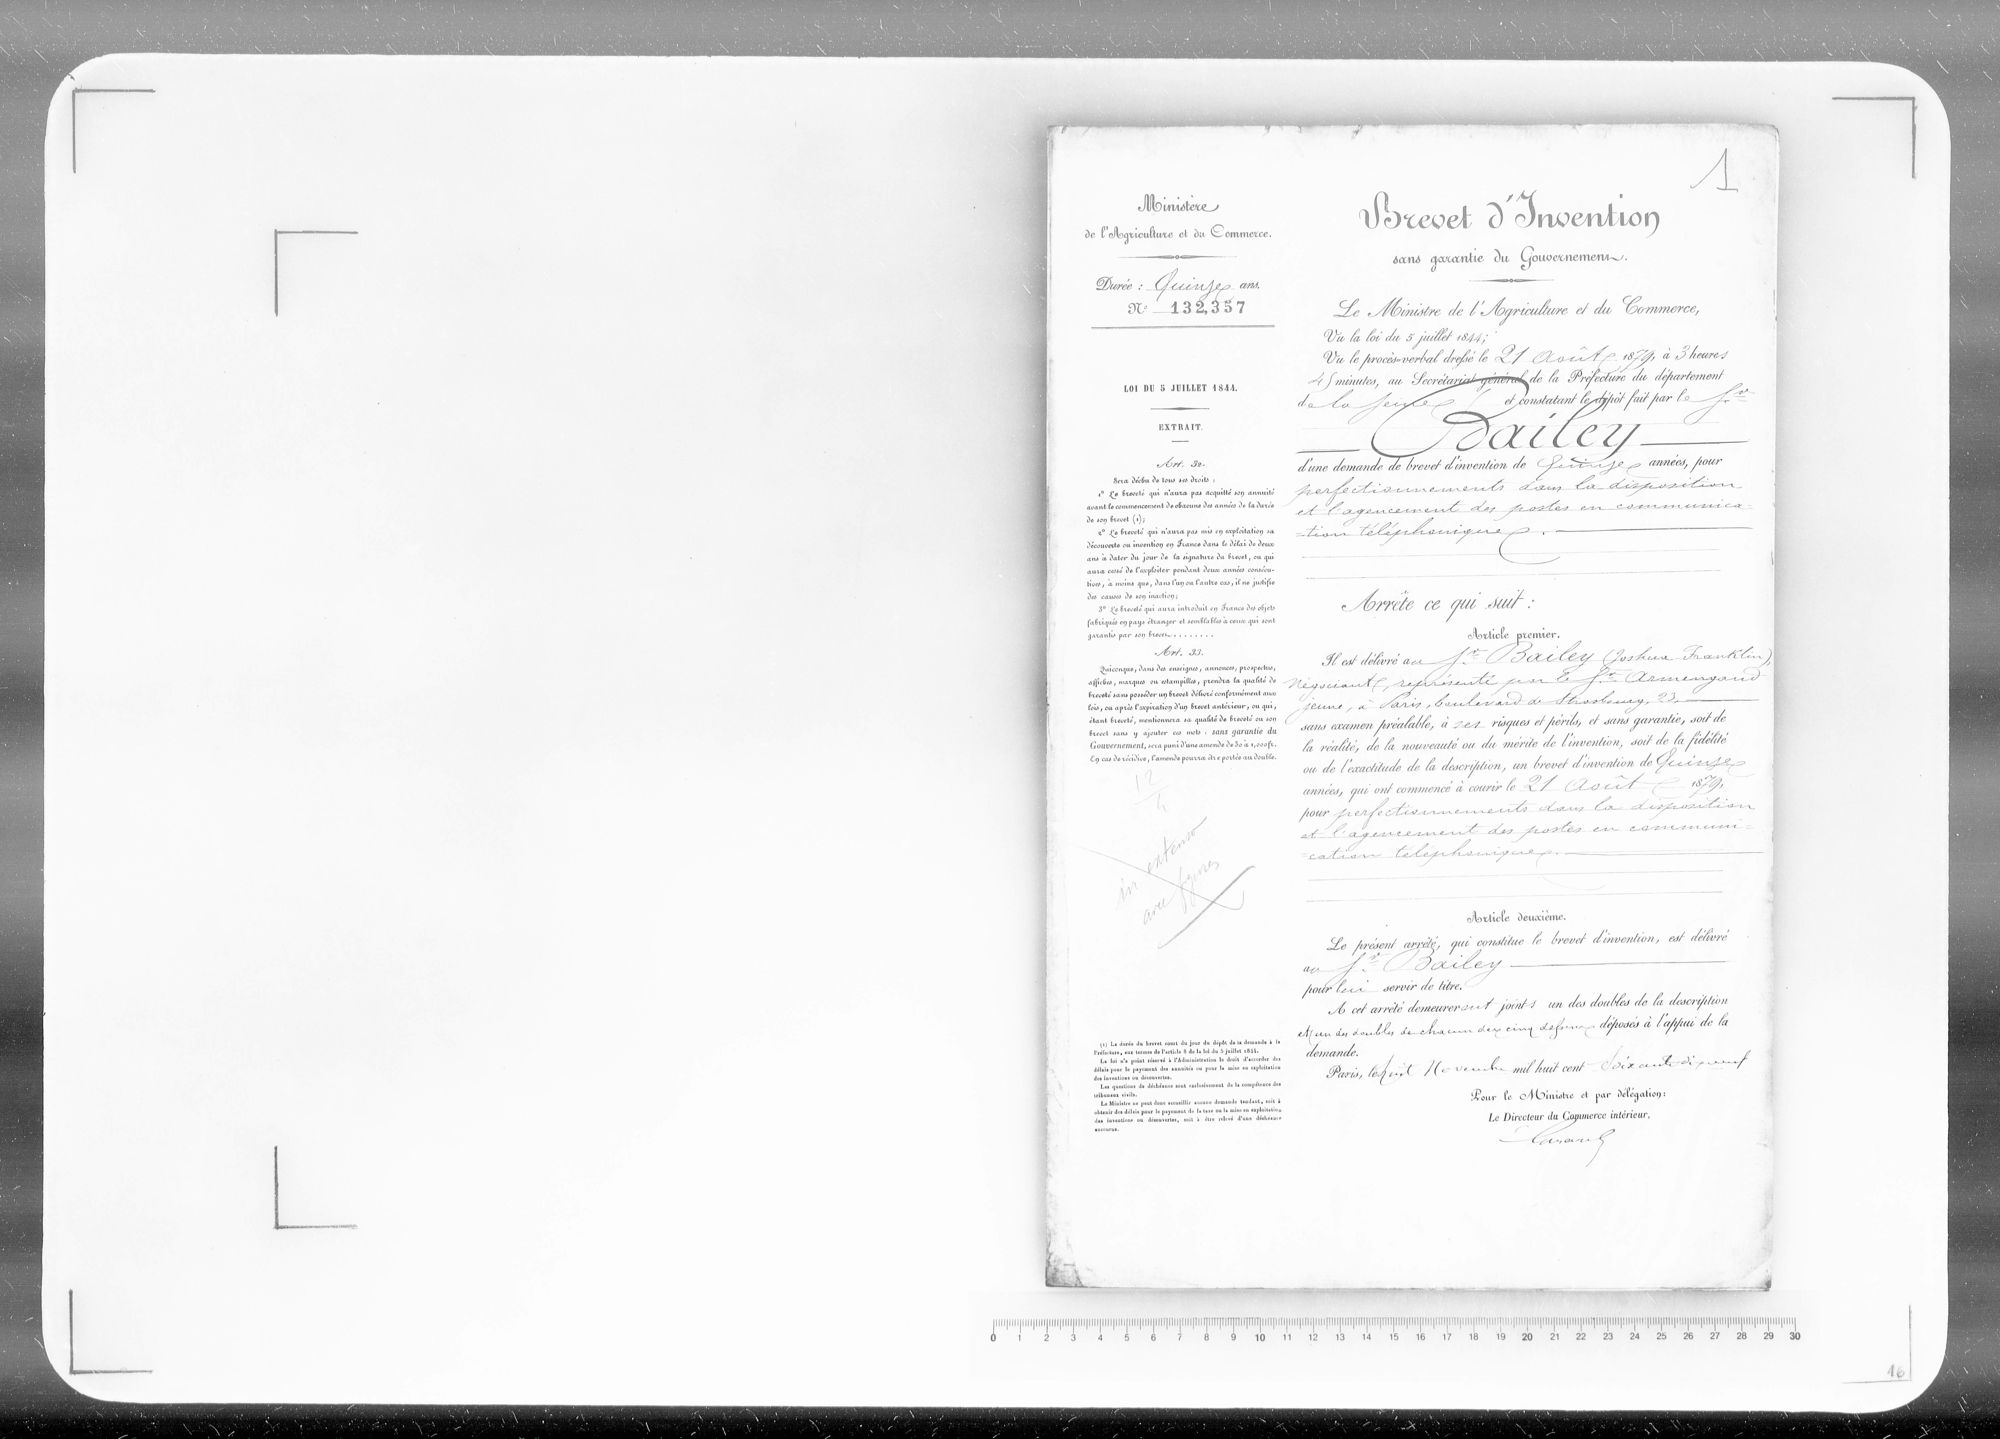 1
Ministère
de l'Agriculture et du Commerce.
Durée : Quinze ans.
N° 132,357
LOI DU 5 JUILLET 1844.
EXTRAIT.
Art. 32.
Sera déchu de tous ses droits :
1° Le breveté qui n'aura pas acquitté son annuité
avant le commencement de chacune des années de la durée
de son brevet (1);
2° Le breveté qui n'aura pas mis en exploitation sa
découverte ou invention en France dans le délai de deux
ans à dater du jour de la signature du brevet, ou qui
aura cessé de l'exploiter pendant deux années consécu-
tives, à moins que, dans l'un ou l'autre cas, il ne justifie
des causes de son inaction;
3° Le breveté qui aura introduit en France des objets
fabriqués en pays étranger et semblables à ceux qui sont
garantis par son brevet........
Art. 33.
Quiconque, dans des enseignes, annonces, prospectus,
affiches, marques ou estampilles, prendra la qualité de
breveté sans posséder un brevet délivré conformément aux
lois, ou après l'expiration d'un brevet antérieur, ou qui,
étant breveté, mentionnera sa qualité de breveté ou son
brevet sans y ajouter ces mots : sans garantie du
Gouvernement, sera puni d'une amende de 50 à 1,000 fr.
En cas de récidive, l'amende pourra être portée au double.
12
in extenso
avec figures
(1) La durée du brevet court du jour du dépôt de la demande à la
Préfecture, aux termes de l'article 8 de la loi du 5 juillet 1844.
La loi n'a point réservé à l'Administration le droit d'accorder des
délais pour le payement des annuités ou pour la mise en exploitation
des inventions ou découvertes.
Les questions de déchéance sont exclusivement de la compétence des
tribunaux civils.
Le Ministre ne peut donc accueillir aucune demande tendant, soit à
obtenir des délais pour le payement de la taxe ou la mise en exploitation
des inventions ou découvertes, soit à être relevé d'une déchéance
encourue.
Brevet d'Invention
sans garantie du Gouvernement.
Le Ministre de l'Agriculture et du Commerce,
Vu la loi du 5 juillet 1844;
Vu le procès-verbal dressé le 21 Août 1879, à 3 heures
45 minutes, au Secrétariat général de la Préfecture du département
de la Seine et constatant le dépôt fait par le Sr
Bailey
d'une demande de brevet d'invention de Quinze années, pour
perfectionnements dans la disposition
et l'agencement des postes en communica-
-tion téléphonique.
Arrête ce qui suit :
Article premier.
Il est délivré au Sr Bailey (Joshua Franklin),
négociant, représenté par le Sr Armengaud
jeune, à Paris, boulevard de Strasbourg, 23,
sans examen préalable, à ses risques et périls, et sans garantie, soit de
la réalité, de la nouveauté ou du mérite de l'invention, soit de la fidélité
ou de l'exactitude de la description, un brevet d'invention de Quinze
années, qui ont commencé à courir le 21 Août 1879,
pour perfectionnements dans la disposition
et l'agencement des postes en communi-
-cation téléphonique.
Article deuxième.
Le présent arrêté, qui constitue le brevet d'invention, est délivré
au Sr Bailey
pour lui servir de titre.
A cet arrêté demeureront joints un des doubles de la description
et un des doubles de chacun des cinq dessins déposés à l'appui de la
demande.
Paris, le huit Novembre mil huit cent soixante dix neuf
Pour le Ministre et par délégation:
Le Directeur du Commerce intérieur,
0 1 2 3 4 5 6 7 8 9 10 11 12 13 14 15 16 17 18 19 20 21 22 23 24 25 26 27 28 29 30
16